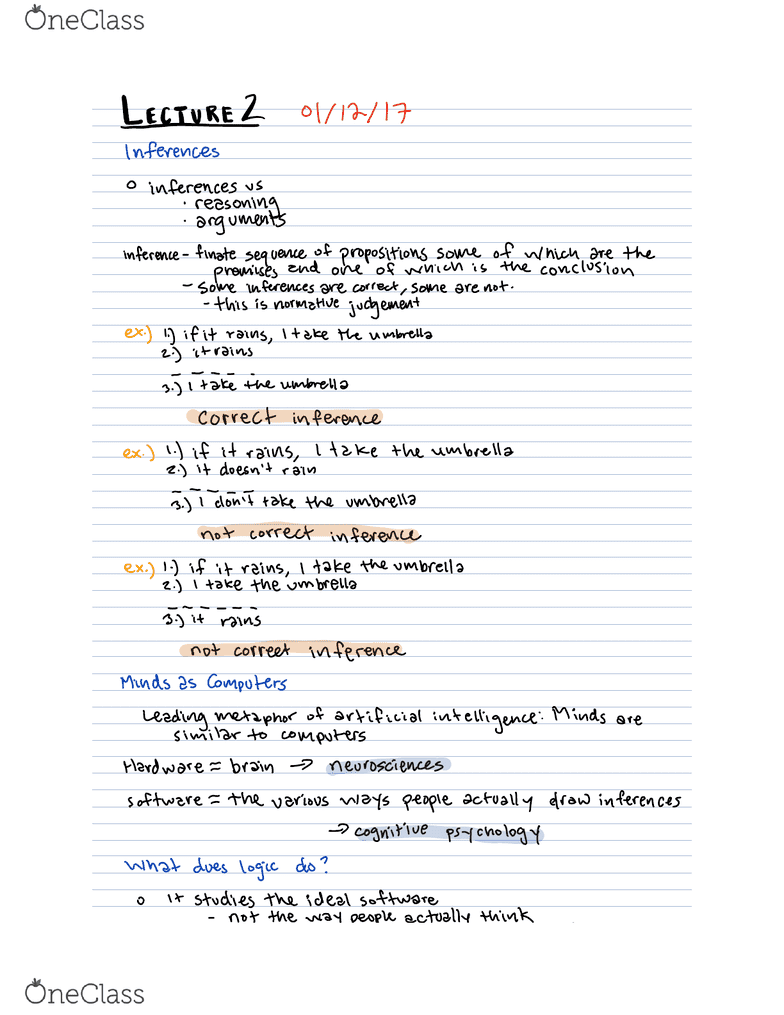 OneClass
LECTURE 2 01/12/17
Inferences
o inferences vs
· reasoning
· arguments
inference - finate sequence of propositions some of which are the
premises and one of which is the conclusion
- Some inferences are correct, some are not.
- this is normative judgement
ex.) 1.) if it rains, I take the umbrella
2.) it rains
3.) I take the umbrella
correct inference
ex.) 1.) if it rains, I take the umbrella
2.) it doesn't rain
3.) I don't take the umbrella
not correct inference
ex.) 1.) if it rains, I take the umbrella
2.) I take the umbrella
3.) it rains
not correct inference
Minds as Computers
Leading metaphor of artificial intelligence: Minds are
similar to computers
Hardware = brain → neurosciences
software = the various ways people actually draw inferences
→ cognitive psychology
What does logic do?
o It studies the ideal software
- not the way people actually think
OneClass